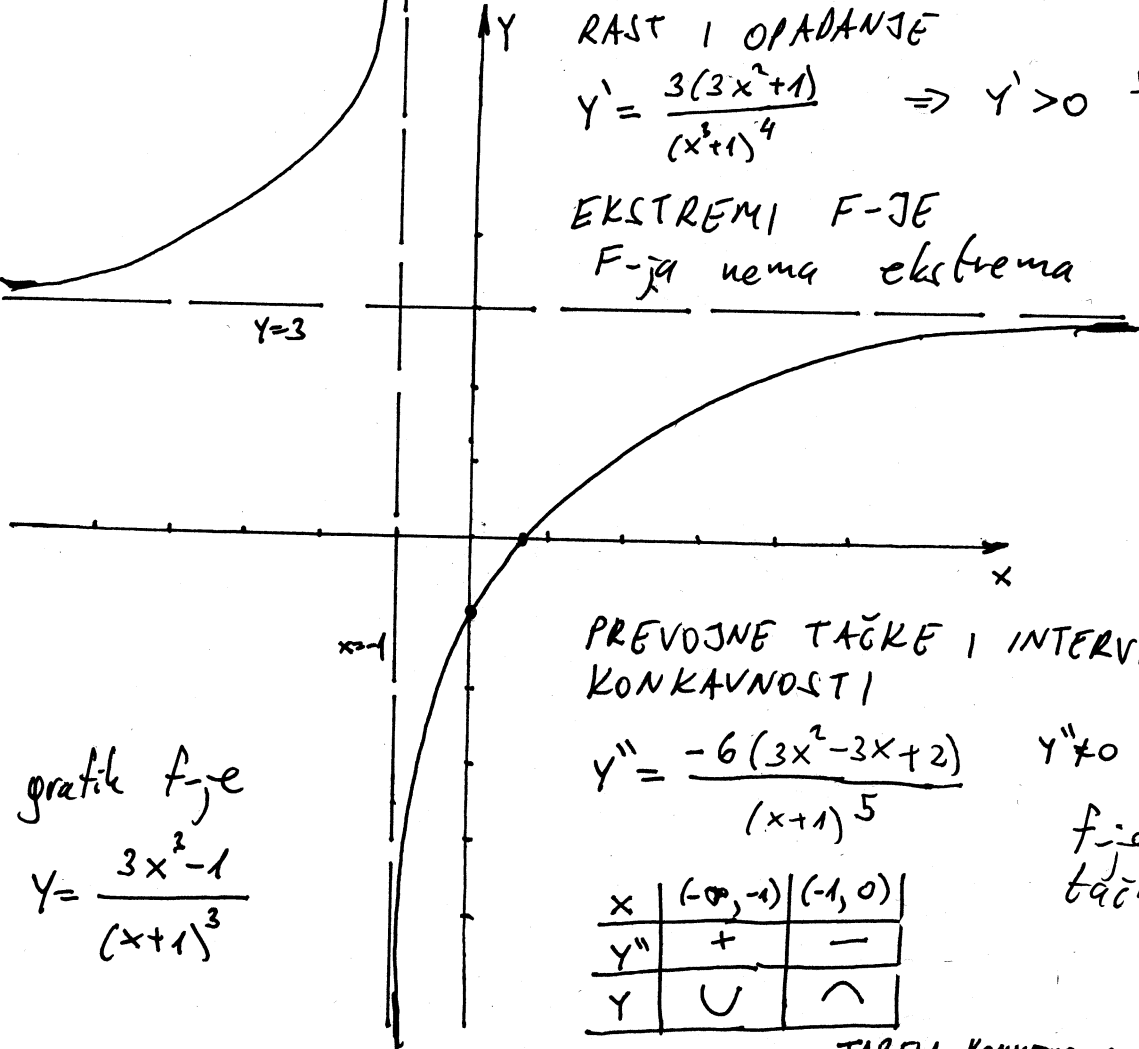 Y
RAST I OPADANJE
Y' = 3(3x²+1) / (x³+1)⁴ ⇒ Y' > 0
EKSTREMI F-JE
F-ja nema ekstrema
Y=3
X
x=-1
PREVOJNE TAČKE I INTERV
KONKAVNOSTI
Y'' = -6(3x²-3x+2) / (x+1)⁵ Y''≠0
grafik f-je
Y = 3x³-1 / (x+1)³
f-je
tač
X (-∞,-1) (-1, 0)
Y'' + −
Y ∪ ∩